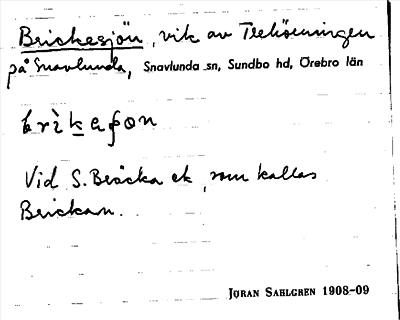 Brickesjön, vik av Trehörningen
på Snavlunda, Snavlunda sn, Sundbo hd, Örebro län
Vid S. Bräcka ek, som kallas
Brickan.
JØRAN SAHLGREN 1908-09